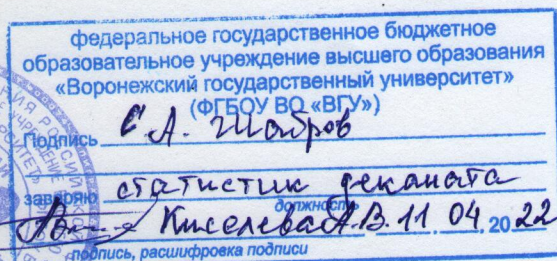 федеральное государственное бюджетное
образовательное учреждение высшего образования
«Воронежский государственный университет»
(ФГБОУ ВО «ВГУ»)
Подпись С.А. Шабров
заверяю статистик деканата
должность
Киселева А.В. 11.04.2022
подпись, расшифровка подписи